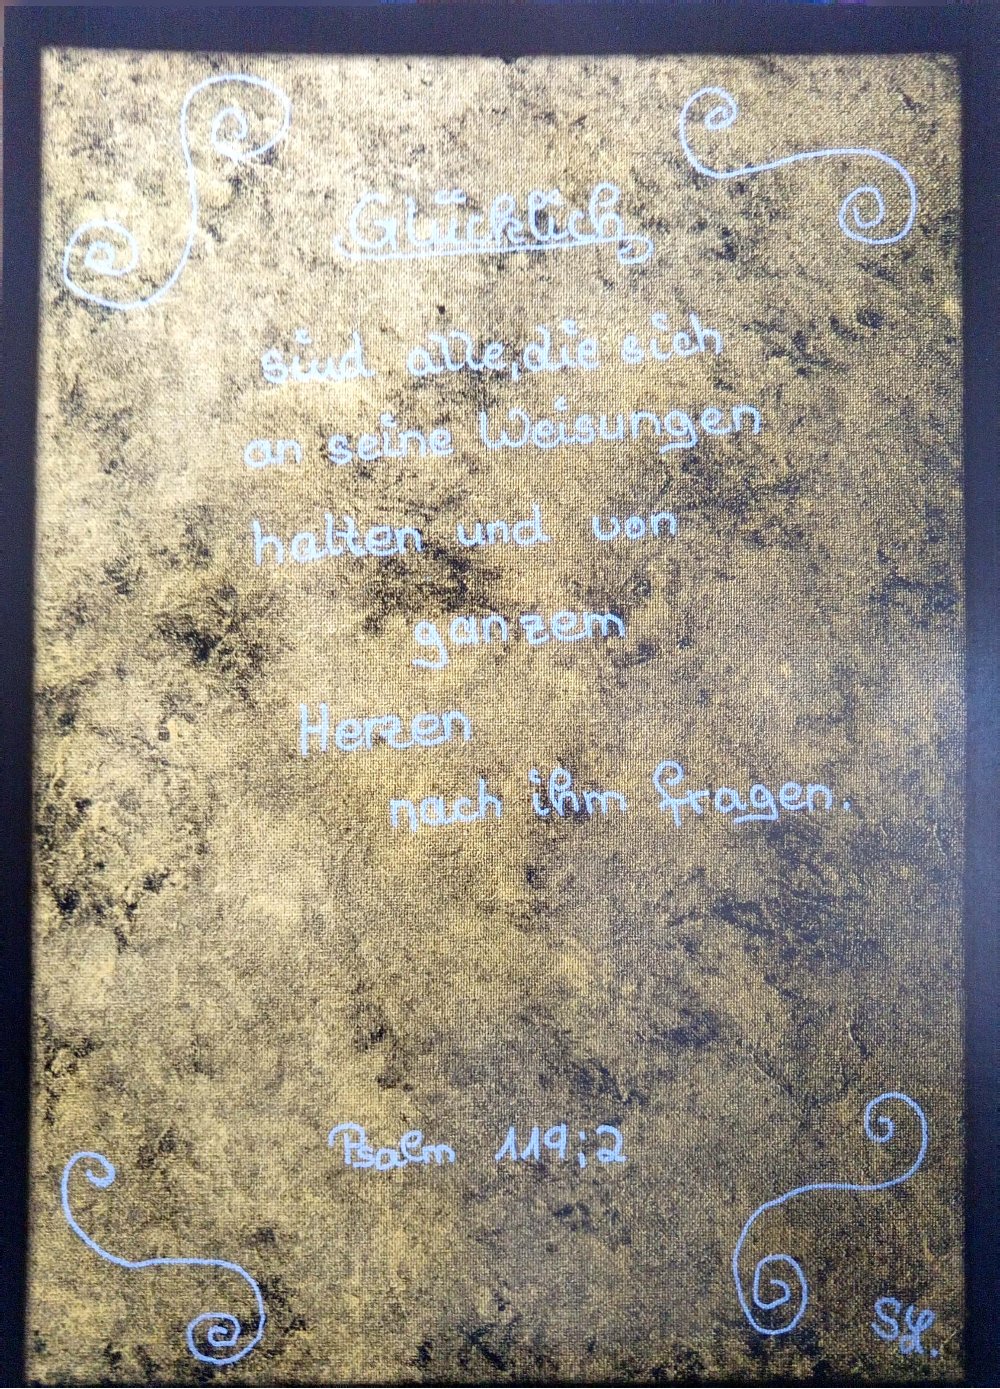 Glücklich
sind alle, die sich
an seine Weisungen
halten und von
ganzem
Herzen
nach ihm fragen.
Psalm 119;2